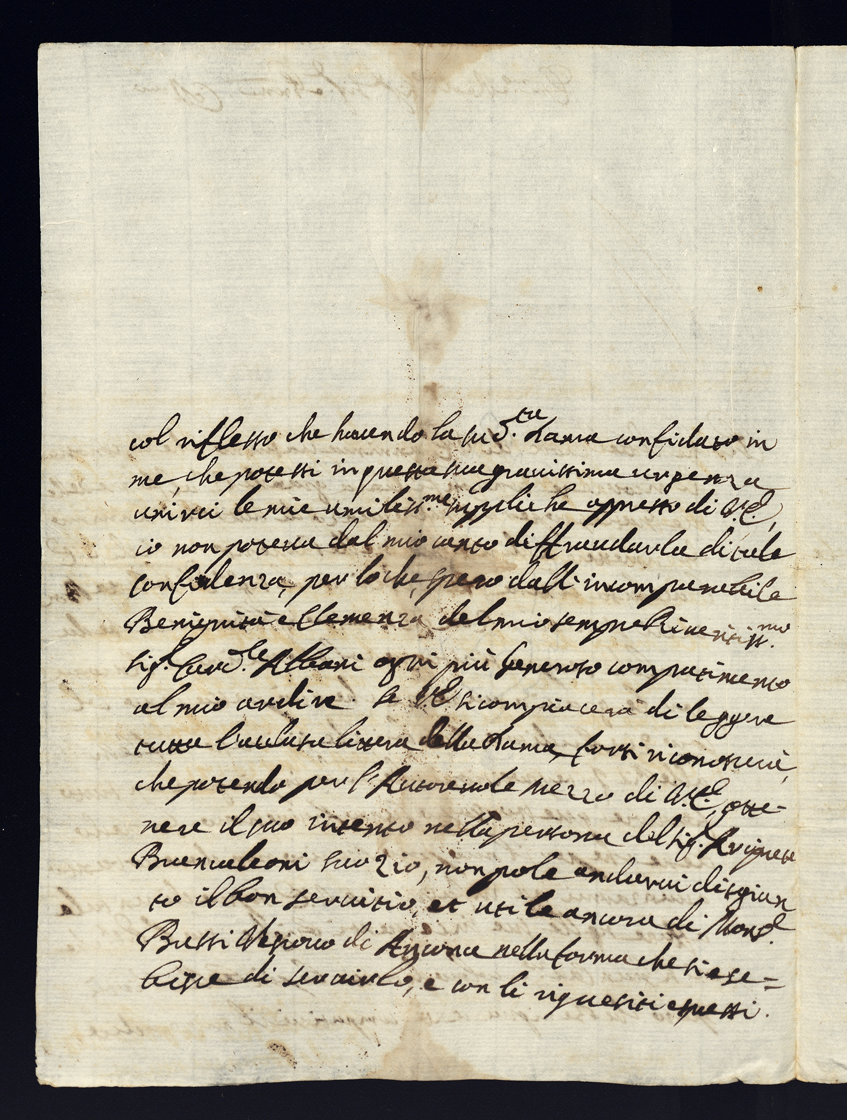 col riflesso che havendo la sud.ta Dama confidato in
me, che potessi in questa sua gravissima urgenza
unirci le mie umiliss.me suppliche appresso di V.E.,
io non poteva dal mio canto diffraudarla di tale
confidenza, per lo che spero dall'incomparabile
Benignità e Clemenza del mio sempre Riveritiss.mo
Sig.r Card.le Albani ogni più generoso compatimento
al mio ardire. Se V.E. si compiacerà di leggere
tutta l'acclusa lettera della Dama, forsi riconoscerà,
che potendo per l'Autorevole mezzo di V.E. otte-
nere il suo intento nella persona del Sig.r
Buenaleoni suo zio, non pole andarvi disgiun
to il bon servitio, et utile ancora di Mons.r
Bussi Vescovo di Ancona nella forma che si ese-
bisce di servirlo, e con li riquesiti espressi.